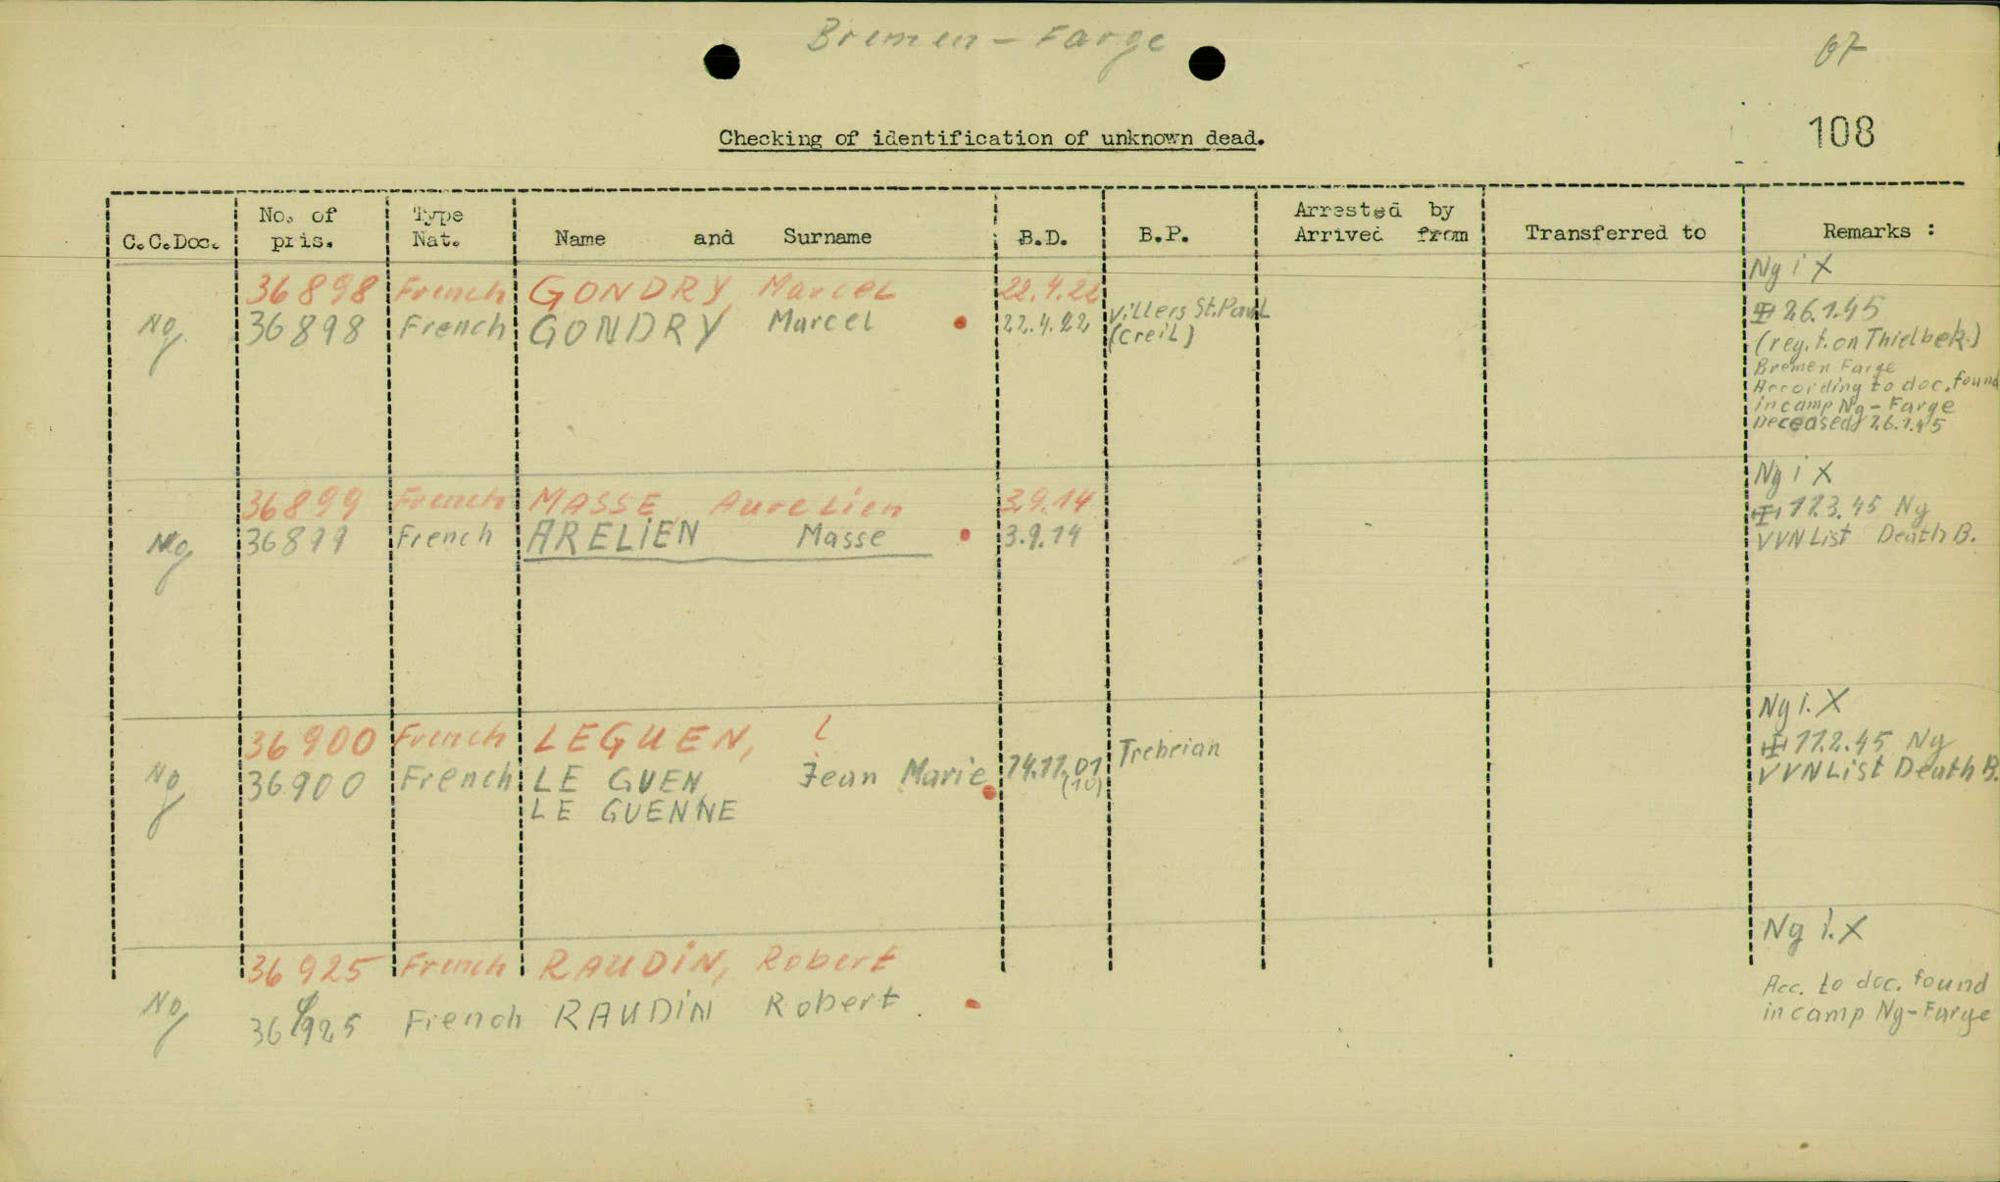 Bremen - Farge
67
108
Checking of identification of unknown dead.
C.C.Doc. No. of pris. Type Nat. Name and Surname B.D. B.P. Arrested by Arrived from Transferred to Remarks :
Ng i X
36898 French GONDRY, Marcel 22.4.22
Ng 36898 French GONDRY Marcel 22.4.22 Villers St.Paul (Creil)
26.1.45
(reg. t. on Thielbek)
Bremen Farge
According to doc. found
in camp Ng - Farge
Deceased 26.1.45
Ng i X
36899 French MASSE, Aurelien 3.9.14
Ng 36899 French ARELIEN Masse 3.9.14
Ng
VVN List Death B.
Ng i. X
36900 French LEGUEN,
Ng 36900 French LE GUEN Jean Marie (10) Trebrian
LE GUENNE
11.2.45 Ng
VVN List Death B.
Ng i. X
36925 French RAUDIN, Robert
Ng 36925 French RAUDIN Robert
Acc. to doc. found
in camp Ng-Farge